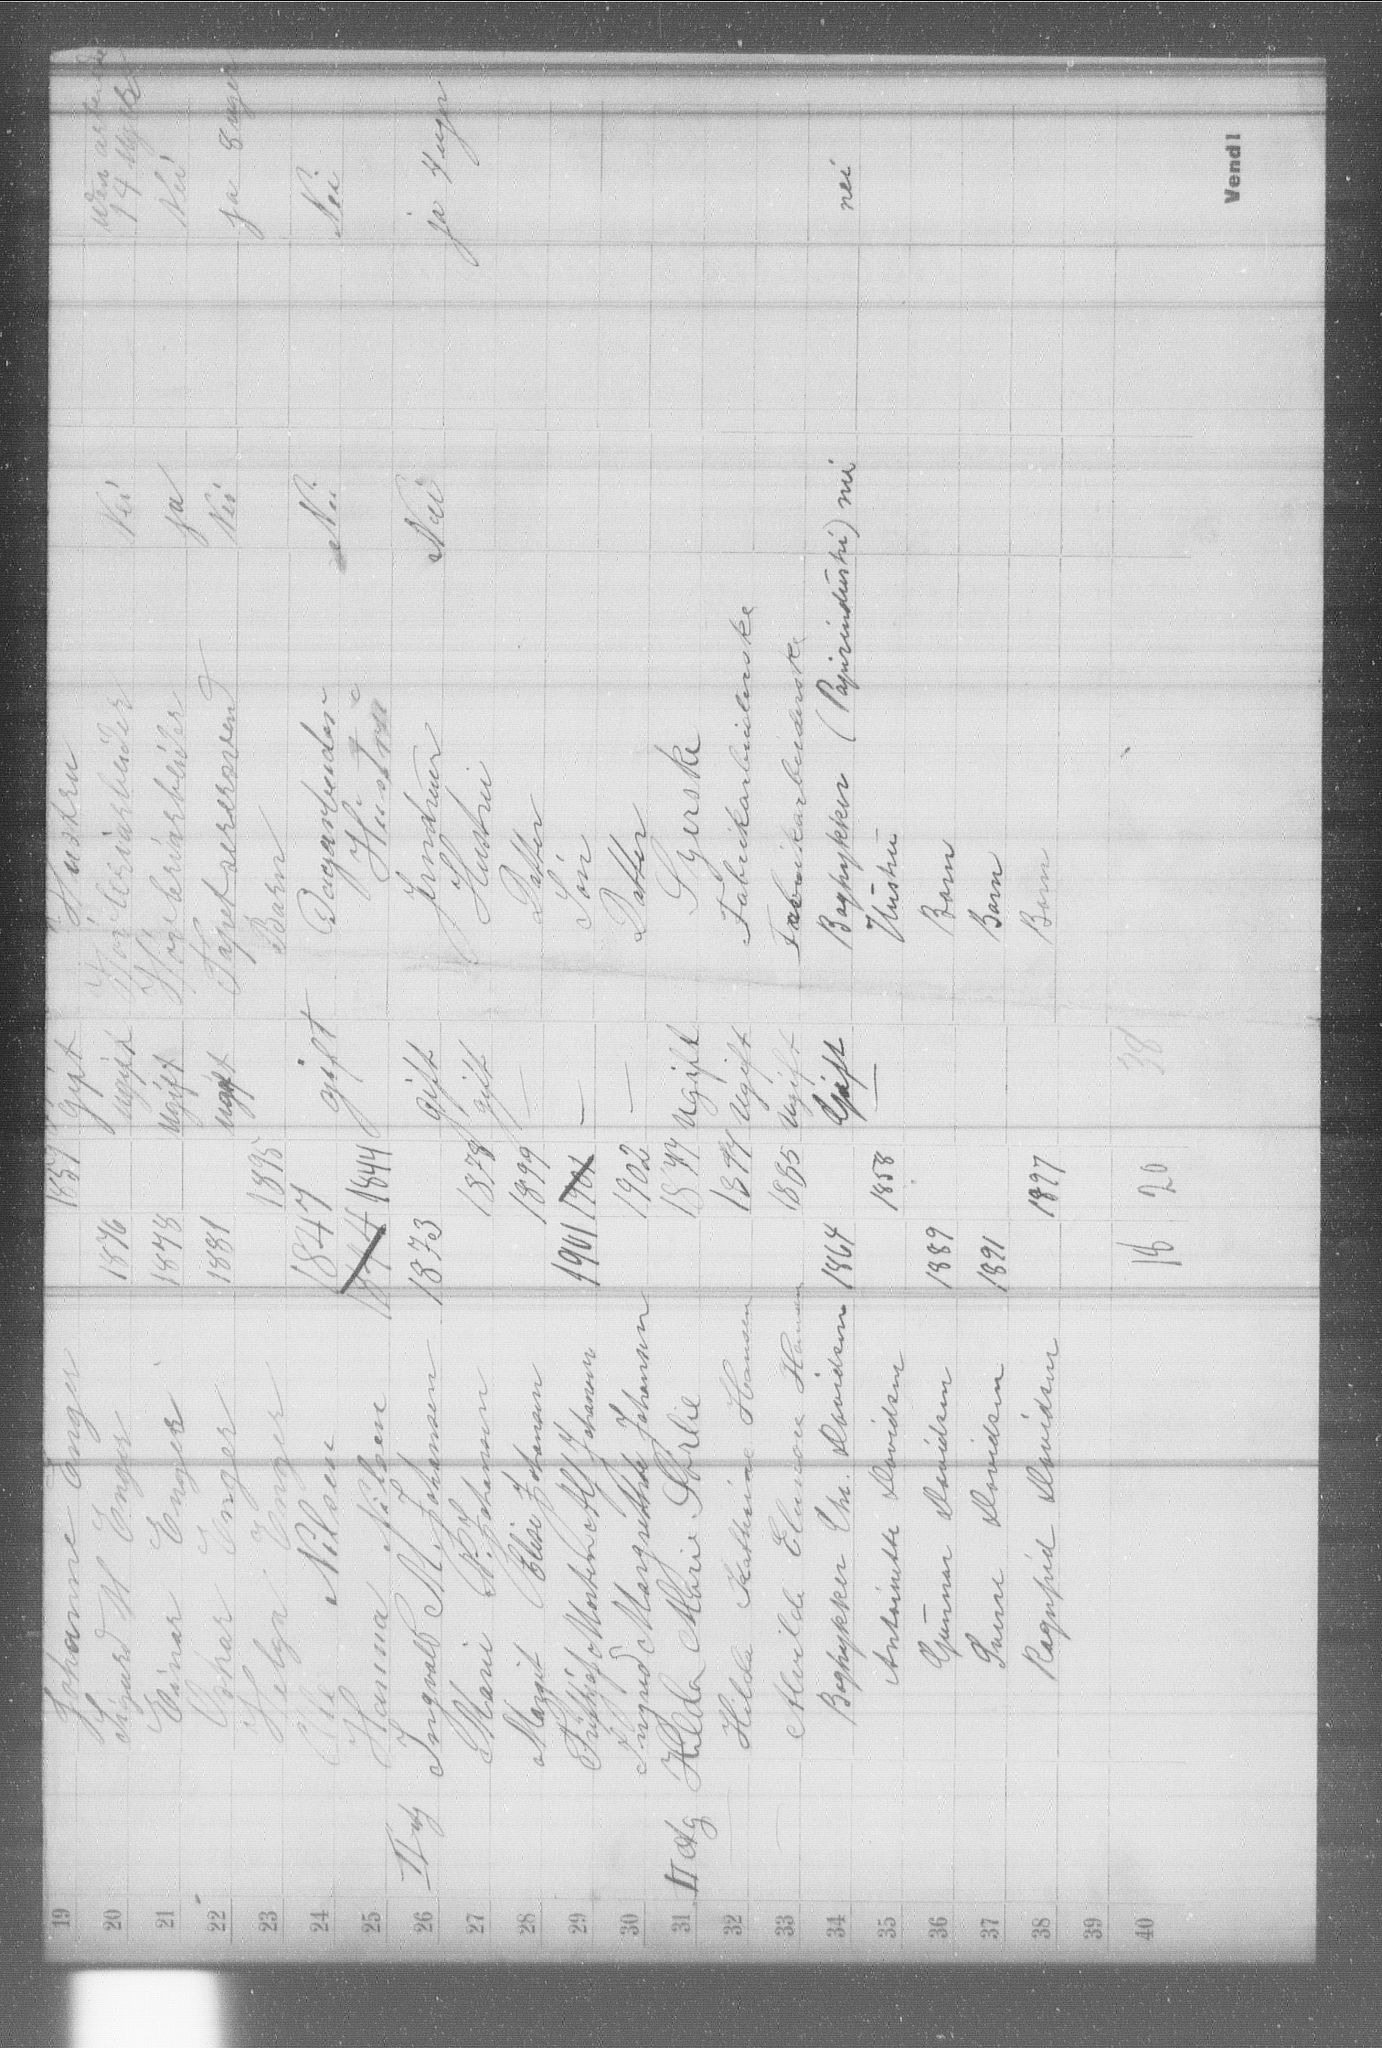 19 Johanne Enger 1857 gift Hustru
uden arbeide
20 Sigurd M Enger 1876 ugift Nei 14 uger
21 Einar Enger 1878 ugift ja Nei
22 Oskar Enger 1881 ugift Tapetserersvend Nei ja 8 uger
23 Helga Enger 1895 Barn
24 Ole Nilsen 1847 gift Nei Nei
25 Hanna Nilsen 1844 Hustru
26 II etg Ingvald M. Johansen 1873 gift Nei ja 4 uger
27 Marie Johansen 1878 gift Hustru
28 Margit Elise Johansen 1899 — Datter
29 Morten Alf Johansen 1901 1901 — Sön
30 Ingrid Margrethe Johansen 1902 — Datter
31 II etg Hilda Marie Sörlie 1877 ugift Syerske
32 Hilda Kathrine Hansen 1877 ugift Fabrikarbeiderske
33 Alvilde Elenore Hansen 1885 ugift Fabrikarbeiderske
34 Bogtykker Chr. Davidsen 1864 Gift Bogtykker (Papirindustri) nei nei
35 Antoinette Davidsen 1858 — Hustru
36 Gunnar Davidsen 1889 Barn
37 Davidsen 1891 Barn
38 Ragnfrid Davidsen 1897 Barn
39
40 18 20 38
Vend!